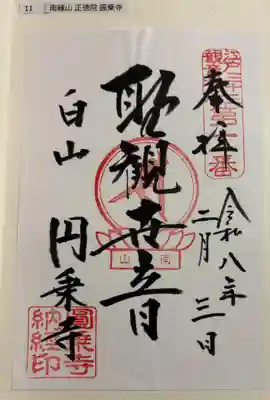 11 南縁山 正徳院 圓乗寺
江戸三十三所
観音第十一番
奉拝
令和八年
二月三日
聖観世音
南山
白山
円乗寺
圓乗寺
納経印